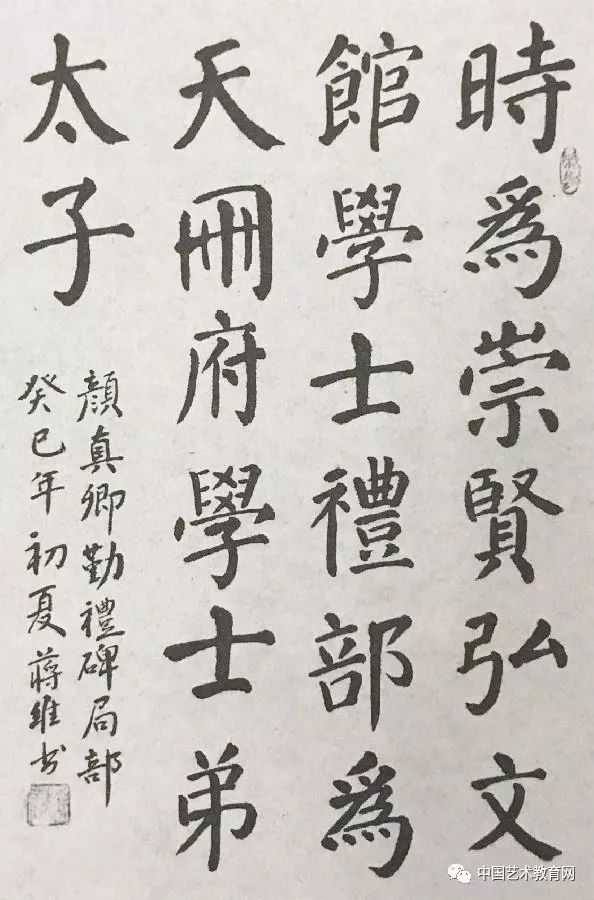 時為崇賢弘文
館學士禮部為
天冊府學士弟
太子
顔真卿勤禮碑局部
癸巳年初夏蔣維书
中国艺术教育网